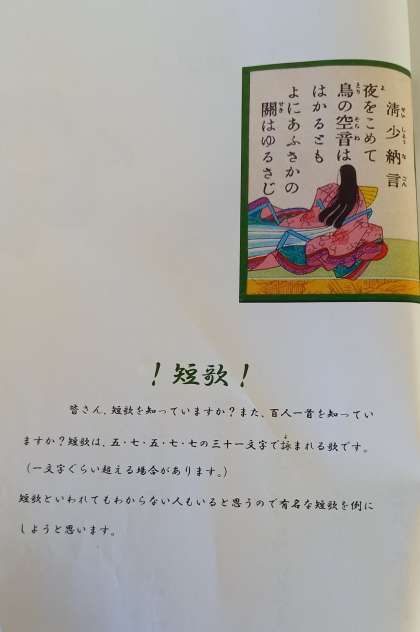 清少納言
夜をこめて
鳥の空音は
はかるとも
よにあふさかの
關はゆるさじ
！短歌！
皆さん、短歌を知っていますか？また、百人一首を知ってい
ますか？短歌は、五・七・五・七・七の三十一文字で詠まれる歌です。
（一文字ぐらい超える場合があります。）
短歌といわれてもわからない人もいると思うので有名な短歌を例に
しようと思います。